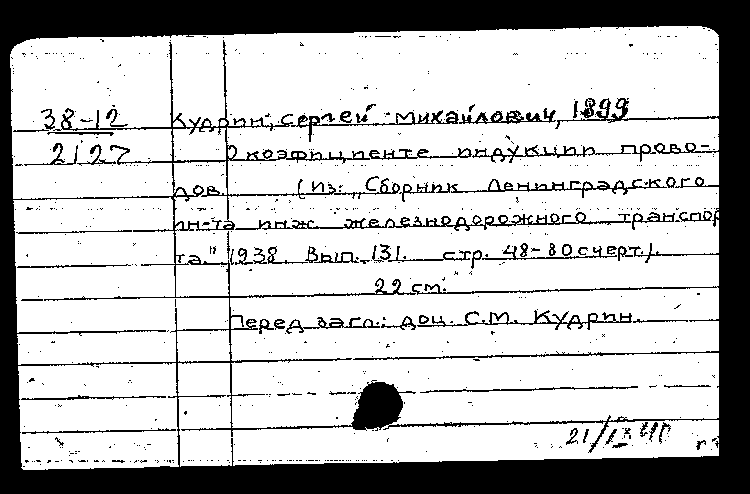 38-12
2127
Кудрин, Сергей Михайлович, 1899
О коэфициенте индукции прово-
дов (Из: „Сборник Ленинградского
ин-та инж. железнодорожного транспор
та." 1938. Вып. 131. стр. 48-80 с черт.).
22 см.
Перед загл.: доц. С.М. Кудрин.
21/IX 40